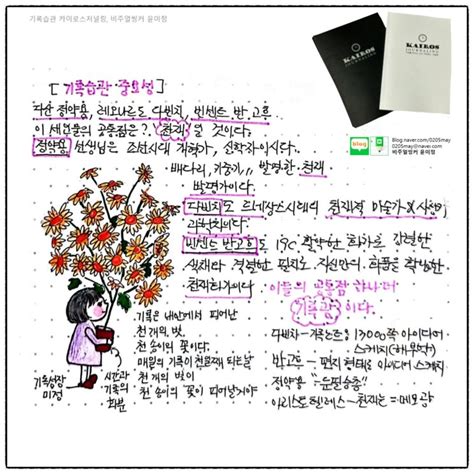 기록습관 카이로스저널링, 비주얼씽커 윤미정
KAIROS
JOURNALING
KAIROS
JOURNALING
[기록습관 중요성]
다산 정약용, 레오나르도 다빈치, 빈센트 반 고흐
이 세 인물의 공통점은?. 천재 일 것이다.
정약용 선생님은 조선시대 개혁가, 실학자이시다.
배다리, 거중기 발명한 천재
발명가이다.
다빈치도 르네상스시대의 천재적 미술가&사상가
과학자이다.
빈센트 반고흐도 19C 활약한 화가로 강렬한
색채와 격렬한 필치로 자신만의 화풍을 확립한
천재화가이다.
이들의 공통점 하나 더
기록광이다.
blog
Blog.naver.com/0205may
0205may@naver.com
비주얼씽커 윤미정
기록은 내안에서 피어난
천 개의 빛,
천 송이의 꽃이다.
매일의 기록이 천일째 되는 날
천 개의 빛이
천 송이의 꽃이 피어날거야
기록성장
미정
시간과
기록의
화분
다빈치-기록노트 13000쪽 아이디어
스케치(해부학)
반고흐- 편지 형태로 아이디어 스케치
정약용- "둔필승총"
아리스토텔레스-천재는 =메모광